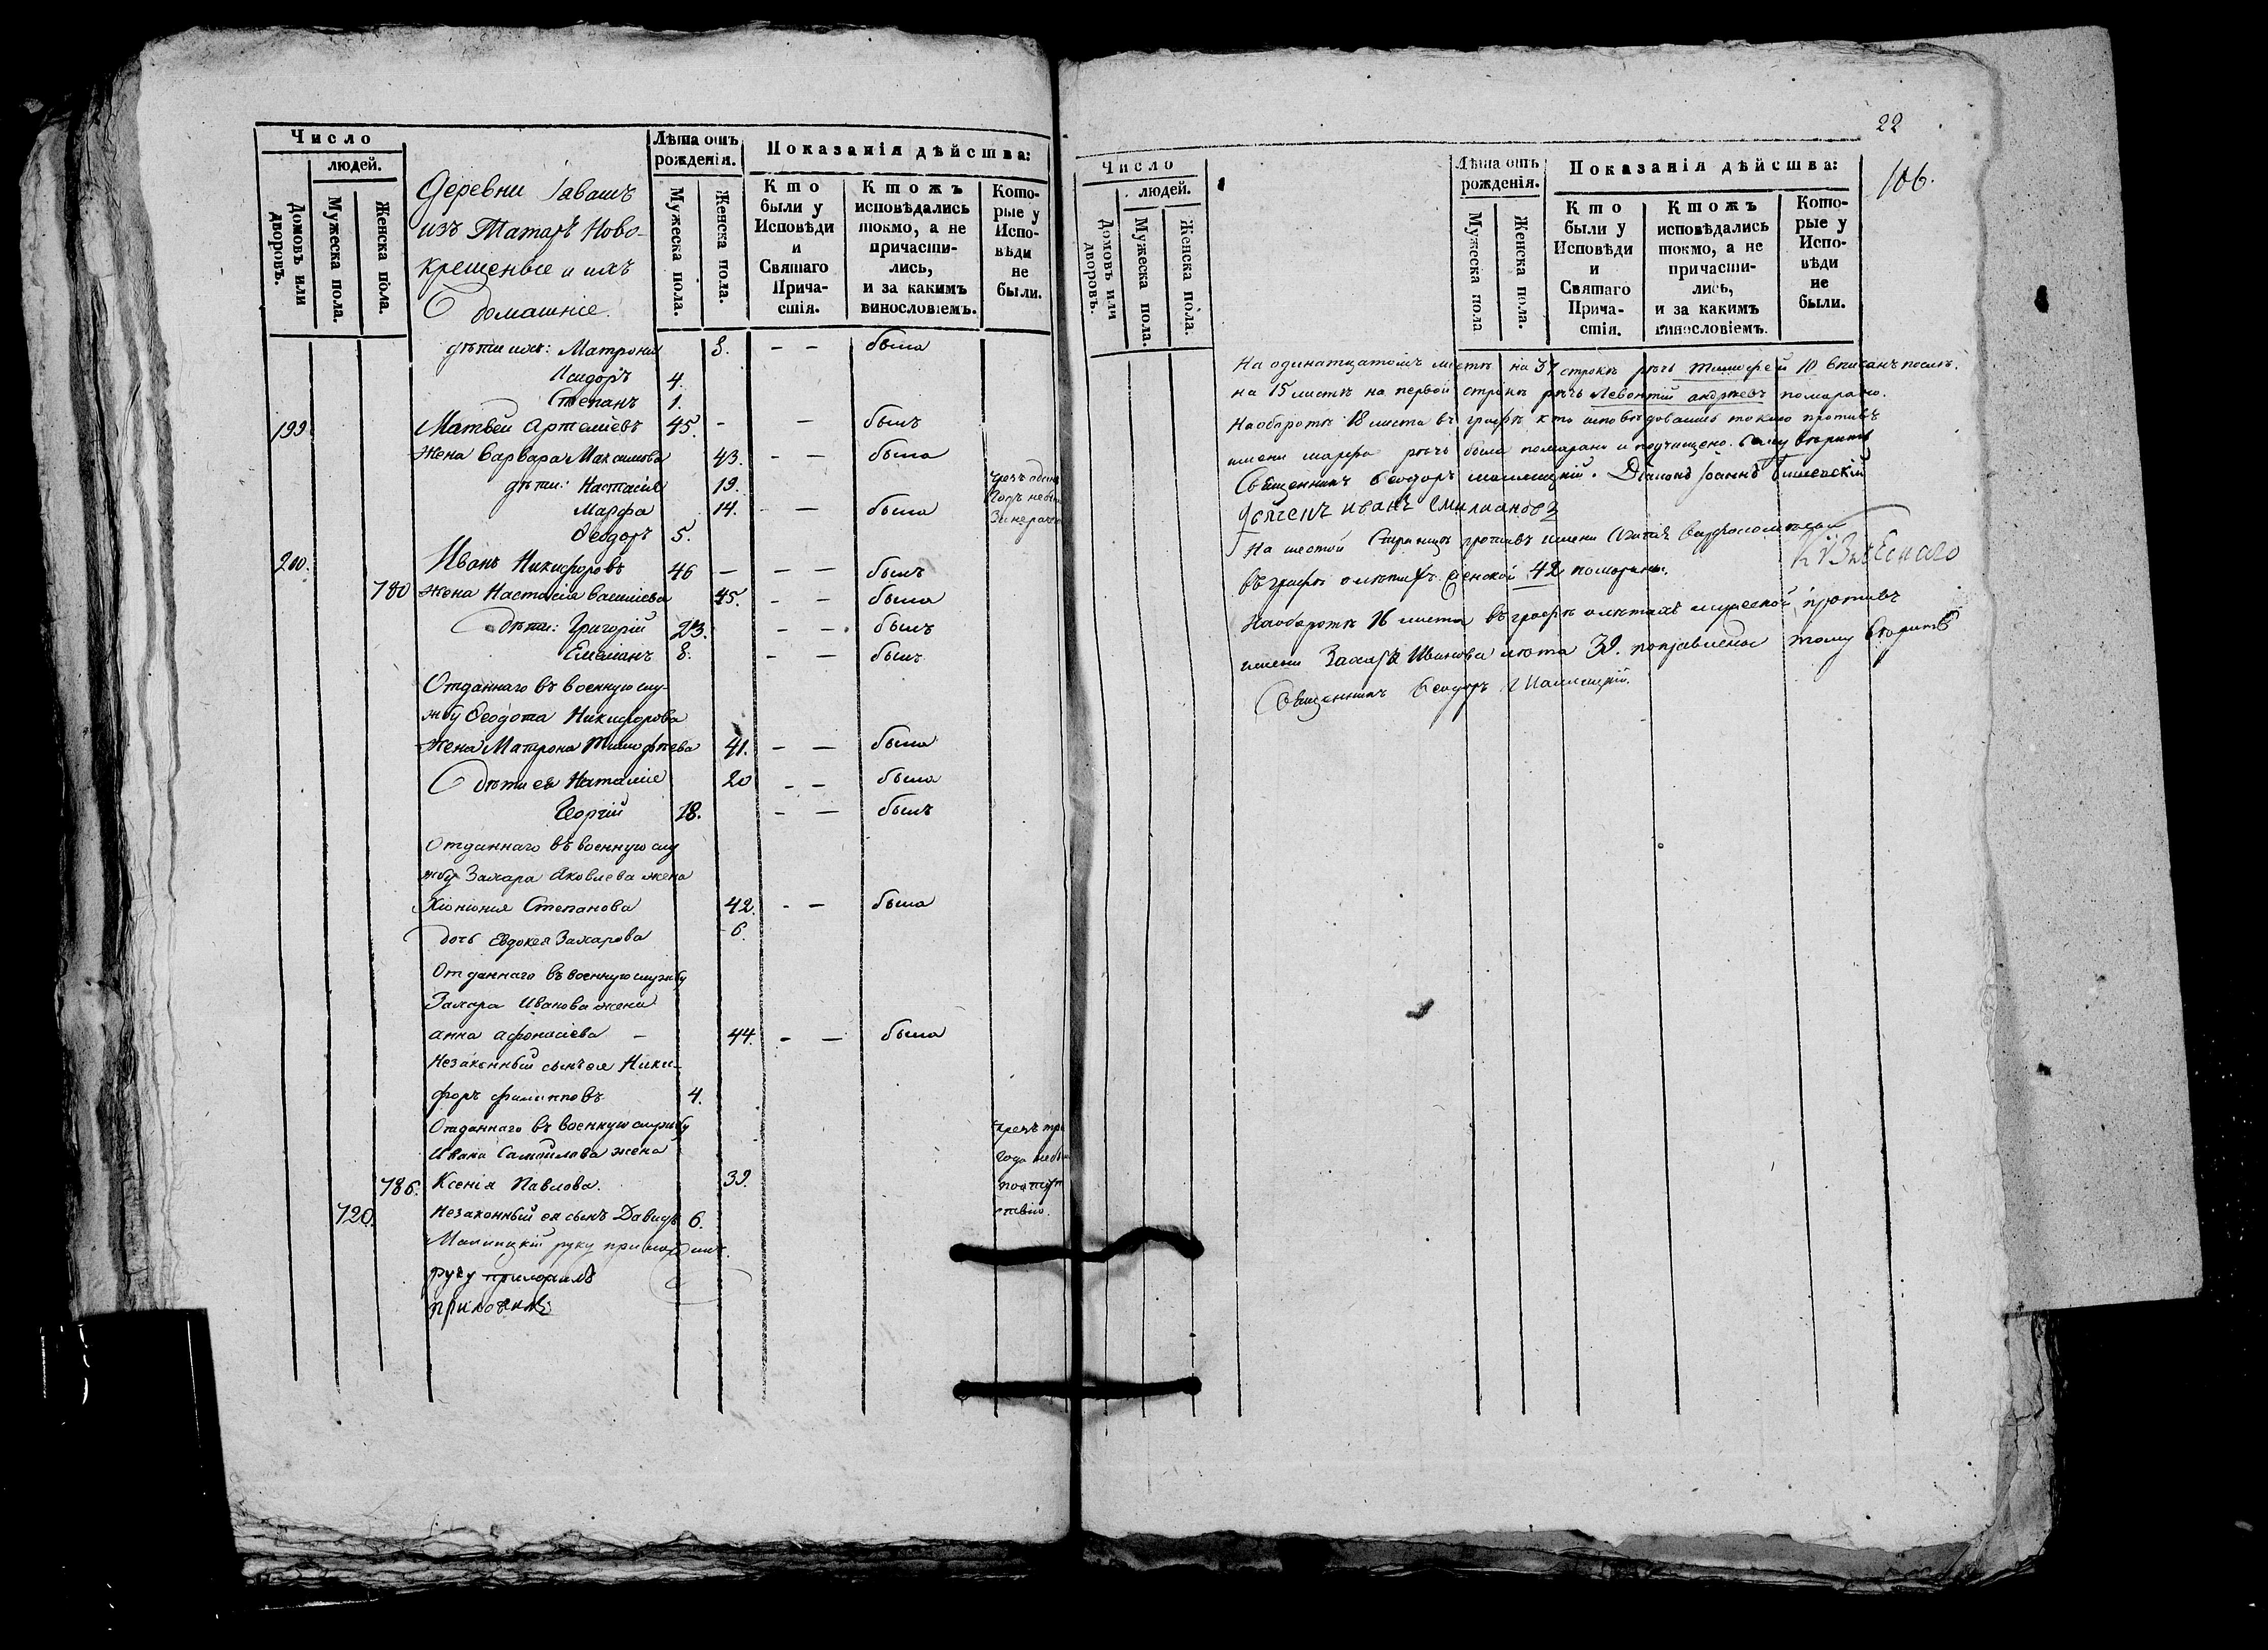 Число
людей.
Домовъ или дворовъ.
Мужеска пола.
Женска пола.
Деревни Гавашъ
изъ Татаръ Ново-
крещеные и ихъ
домашніе.
Лѣта отъ рожденія.
Мужеска пола.
Женска пола.
Показанія дѣйства:
Кто были у Исповѣди и Святаго Причастія.
Ктожъ исповѣдались токмо, а не причастились, и за какимъ винословіемъ.
Которые у Исповѣди не были.
дѣти ихъ: Матрона 8. — — была
Исидоръ 4.
Степанъ 1.
199 Матвей Артеміевъ 45. — — былъ
жена Варвара Максимова 43. — — была
дѣти: Настасія 19. чрезъ одинъ годъ не
Марфа 14. — — была
Феодоръ 5.
200. Иванъ Никифоровъ 46 — — — былъ
780 жена Настасія Василіева 45. — — была
дѣти: Григорій 23. — — былъ
Емелианъ 8. — — былъ
Отданнаго въ военную слу-
жбу Феодота Никифорова
жена Матрона Тимофѣева 41. — — была
дѣти ея Наталіе 20 — — была
Георгій 18. — — былъ
Отданнаго въ военную слу
жбу Захара Яковлева жена
Хіонія Степанова 42. — — была
дочь Евдокея Захарова 6.
Отданнаго въ военную службу
Захара Иванова жена
анна афонасіева — 44. — — была
Незаконный сынъ ея Ники-
форъ филипповъ 4.
Отданнаго въ военную службу чрезъ три
Ивана Самойлова жена года не
786. Ксенія Павлова. 39.
720. Незаконный ея сынъ Давидъ 6.
руку приложилъ.
руку приложилъ
приложилъ
22
106.
Число
людей.
Домовъ или дворовъ.
Мужеска пола.
Женска пола.
Лѣта отъ рожденія.
Мужеска пола
Женска пола.
Показанія дѣйства:
Кто были у Исповѣди и Святаго Причастія.
Ктожъ исповѣдались токмо, а не причастились, и за какимъ винословіемъ.
Которые у Исповѣди не были.
На одинатцатомъ листѣ на 37 строкѣ рѣчь Тимофей 10 вписанъ послѣ.
на 15 листѣ на первой строкѣ рѣчь Левонтій андрѣевъ помарано.
На оборотѣ 18 листа въ графѣ кто исповѣдовались токмо противъ
имени марфа рѣчь была помарано и подчищено. тому вѣритъ
Священникъ Феодоръ Діаконъ Іоаннъ
Иванъ Емилиановъ
На шестой страницѣ противъ имени
въ графѣ о лѣтахъ женской 42 помарано.
На оборотѣ 16 листа въ графѣ о лѣтахъ мужеской противъ
имени Захара Иванова лѣта 39. поправлено тому вѣритъ
Священникъ Феодоръ